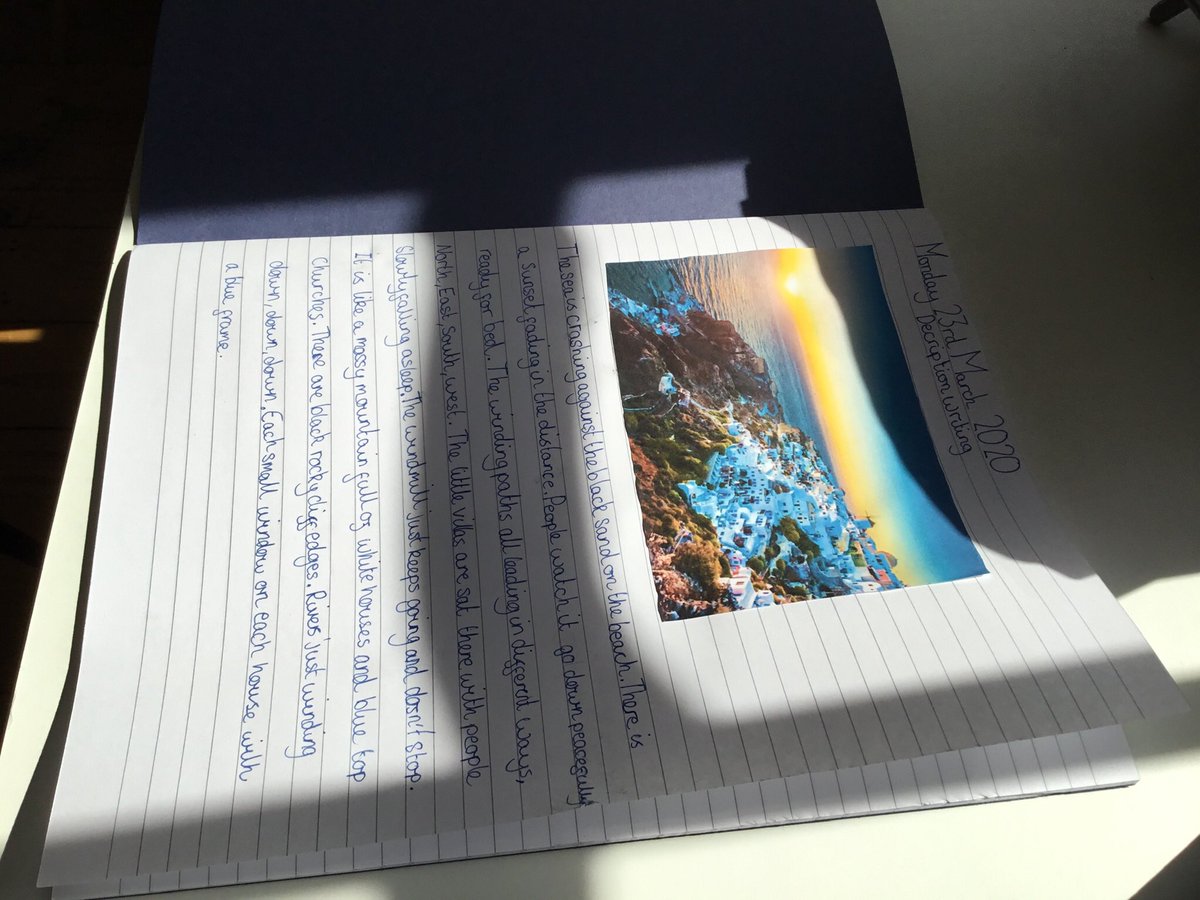 Monday 23rd March 2020
Decription writing
The sea is crashing against the black sand on the beach. There is
a sunset fading in the distance. People watch it go down peacefully
ready for bed. The winding paths all leading in different ways,
North, East, South, west. The little villas are sat there with people
slowly falling asleep. The windmill just keeps going and dosn't stop.
It is like a mossy mountain full of white houses and blue top
Churches. There are black rocky cliff edges. Rivers just winding
down, down, down. Each small window on each house with
a blue frame.